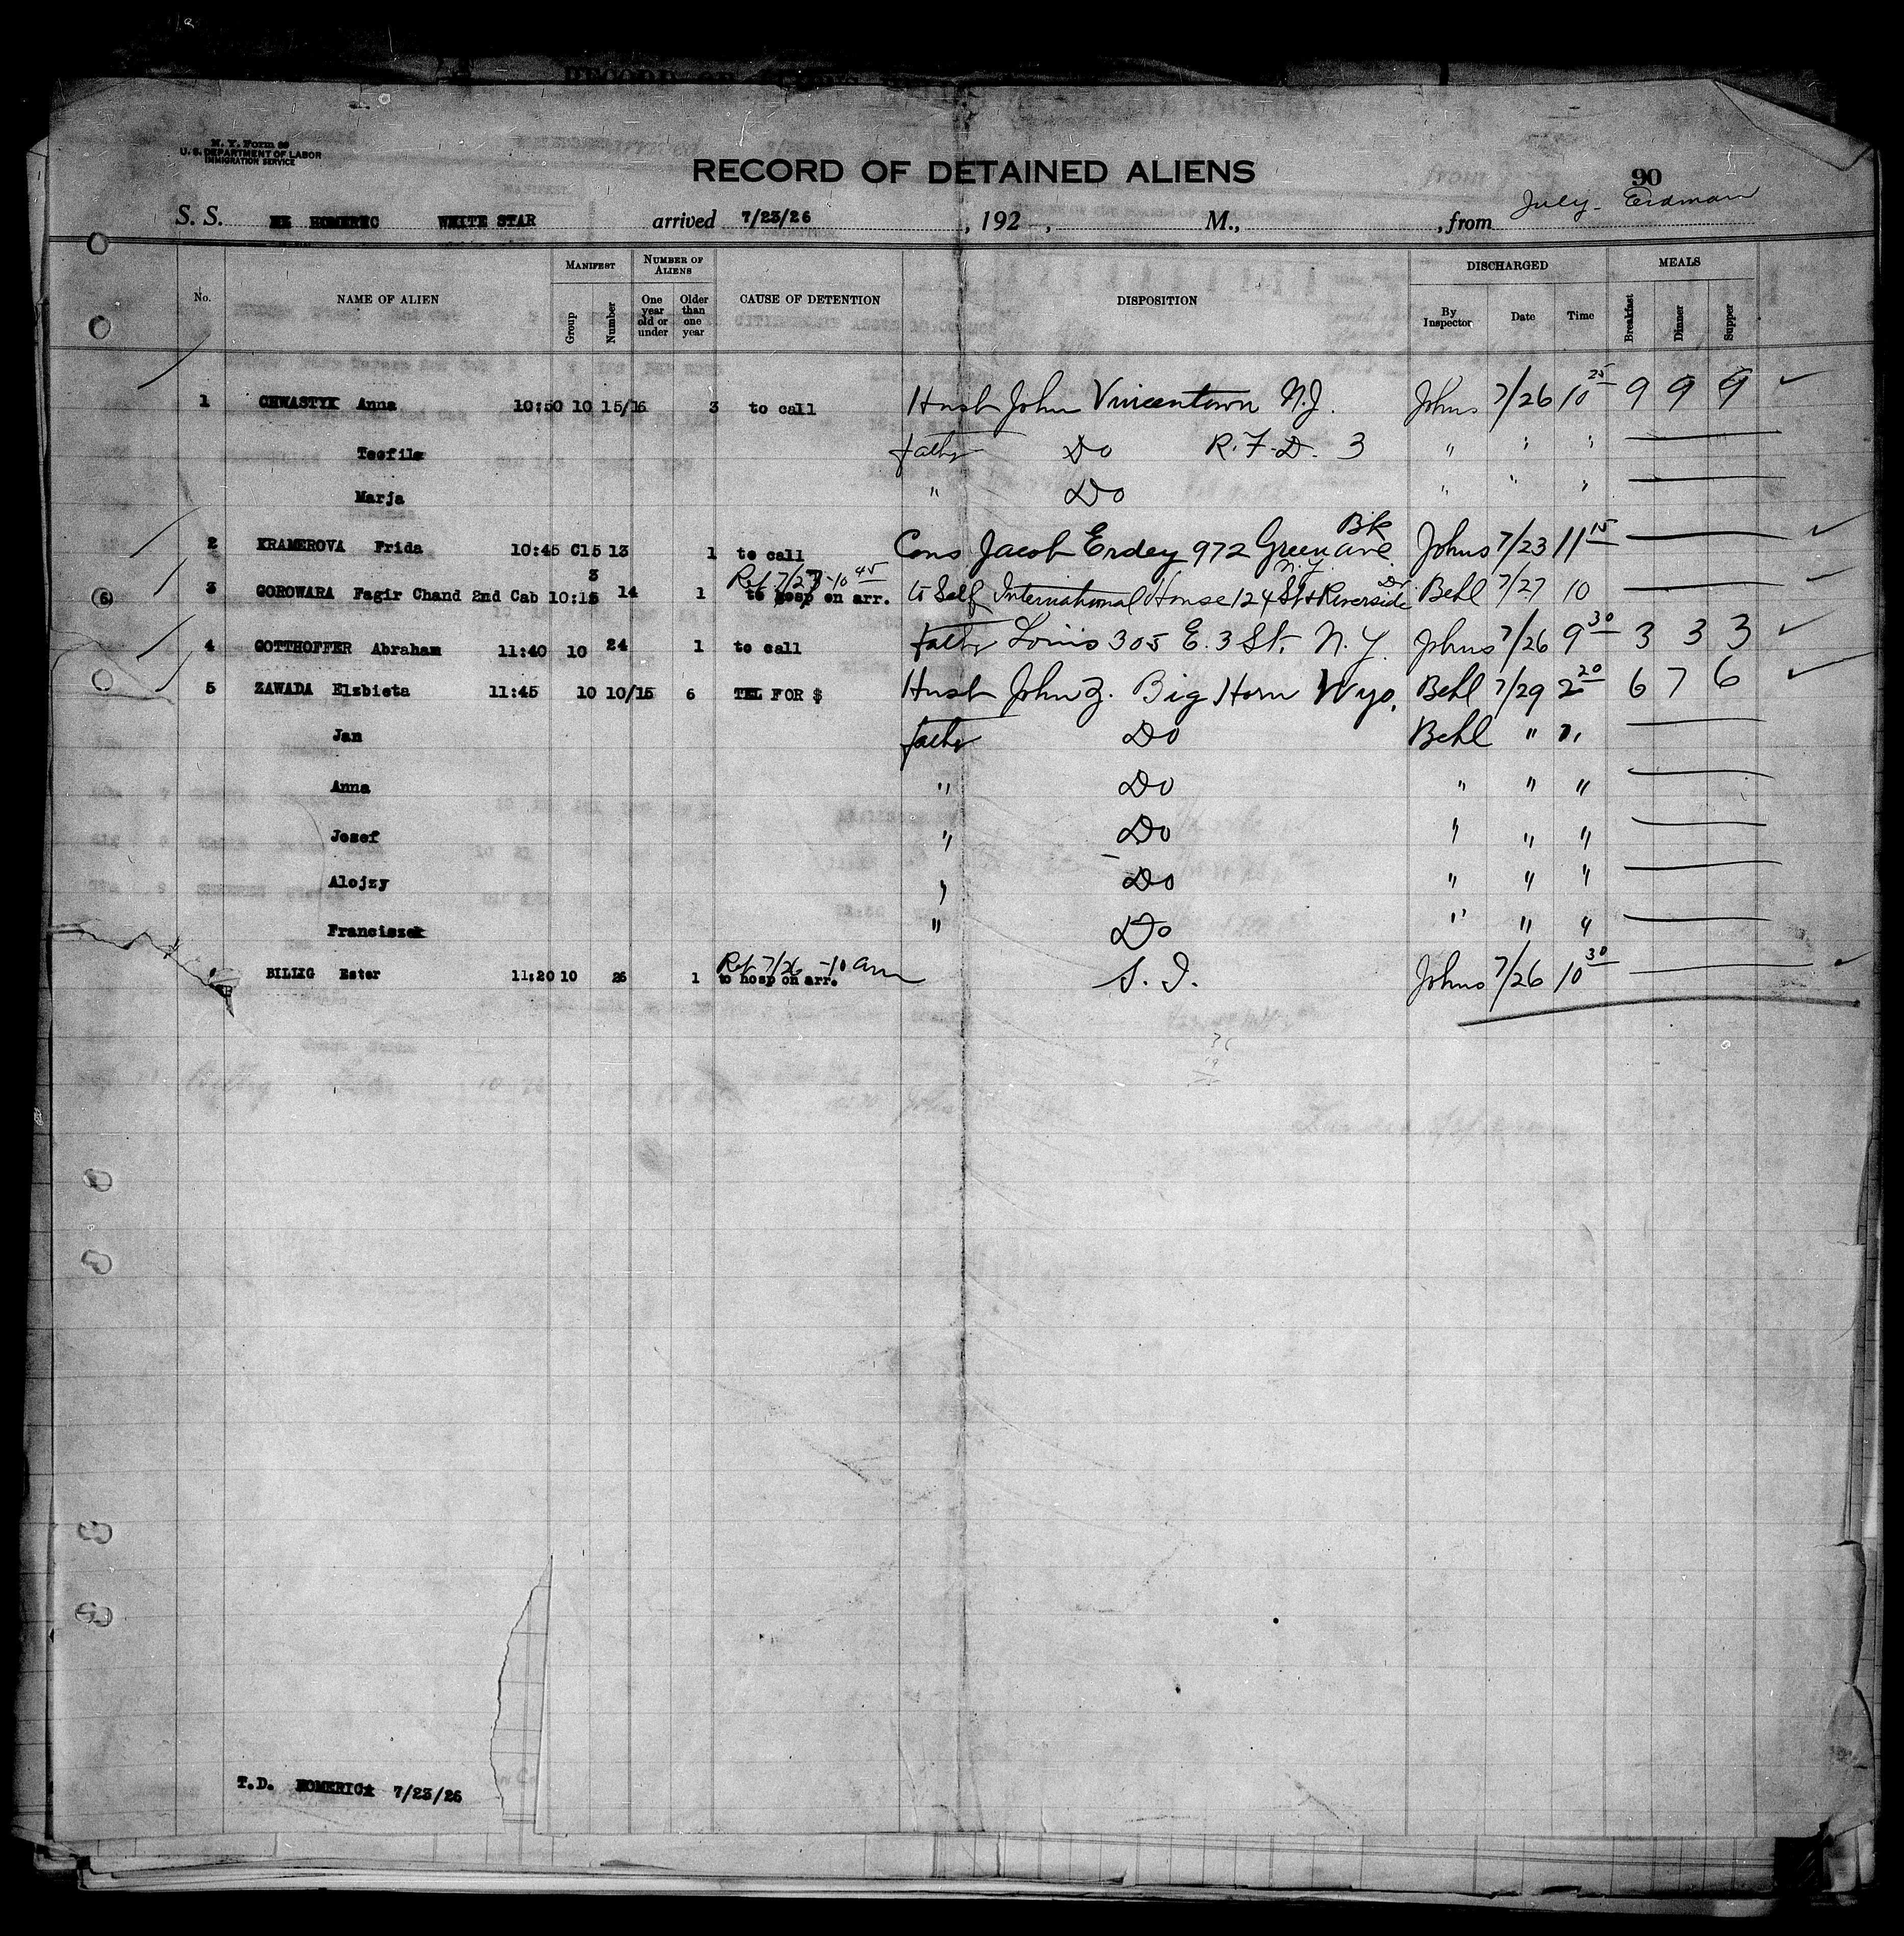 N. Y. Form 99
U. S. DEPARTMENT OF LABOR
IMMIGRATION SERVICE
RECORD OF DETAINED ALIENS
90
S. S. HOMERIC WHITE STAR arrived 7/23/26, 192 , M., , from July. Erdman
No. NAME OF ALIEN MANIFEST Group Number NUMBER OF ALIENS One year old or under Older than one year CAUSE OF DETENTION DISPOSITION DISCHARGED By Inspector Date Time MEALS Breakfast Dinner Supper
1 CHWASTYK Anna 10:50 10 15/16 3 to call Husb John Vincentown N.J. Johns 7/26 10 25 9 9 9 ✓
Teofila father Do R.F.D. 3 " " "
Marja " Do " " "
2 KRAMEROVA Frida 10:45 C15 13 1 to call Cons Jacob Erdey 972 Green ave Bk N.Y. Johns 7/23 11 15 ✓
6 3 GOROWARA Fagir Chand 2nd Cab 10:15 3 14 1 Ref. 7/27-10 45 to hosp on arr. to Self International House 124 St & Riverside Dr. Behl 7/27 10 ✓
4 GOTTHOFFER Abraham 11:40 10 24 1 to call Father Louis 305 E. 3 St. N.Y. Johns 7/26 9 30 3 3 3 ✓
5 ZAWADA Elzbieta 11:45 10 10/15 6 TEL FOR $ Husb John Z. Big Horn Wyo. Behl 7/29 2 20 6 7 6 ✓
Jan father Do Behl " "
Anna " Do " " "
Josef " Do " " "
Alojzy " Do " " "
Franciszek " Do " " "
BILLIG Ester 11:20 10 26 1 Ref. 7/26 -10 am to hosp on arr. S. I. Johns 7/26 10 30 ✓
T.D. HOMERIC 7/23/26